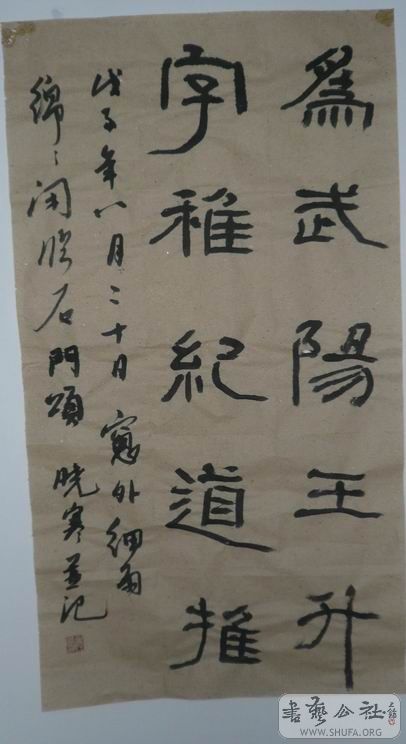 為武陽王升
字稚紀道推
戊子年八月二十日窻外細雨
綿〻閑臨石門頌 晓寒並记
書藝公社
WWW.SHUFA.ORG